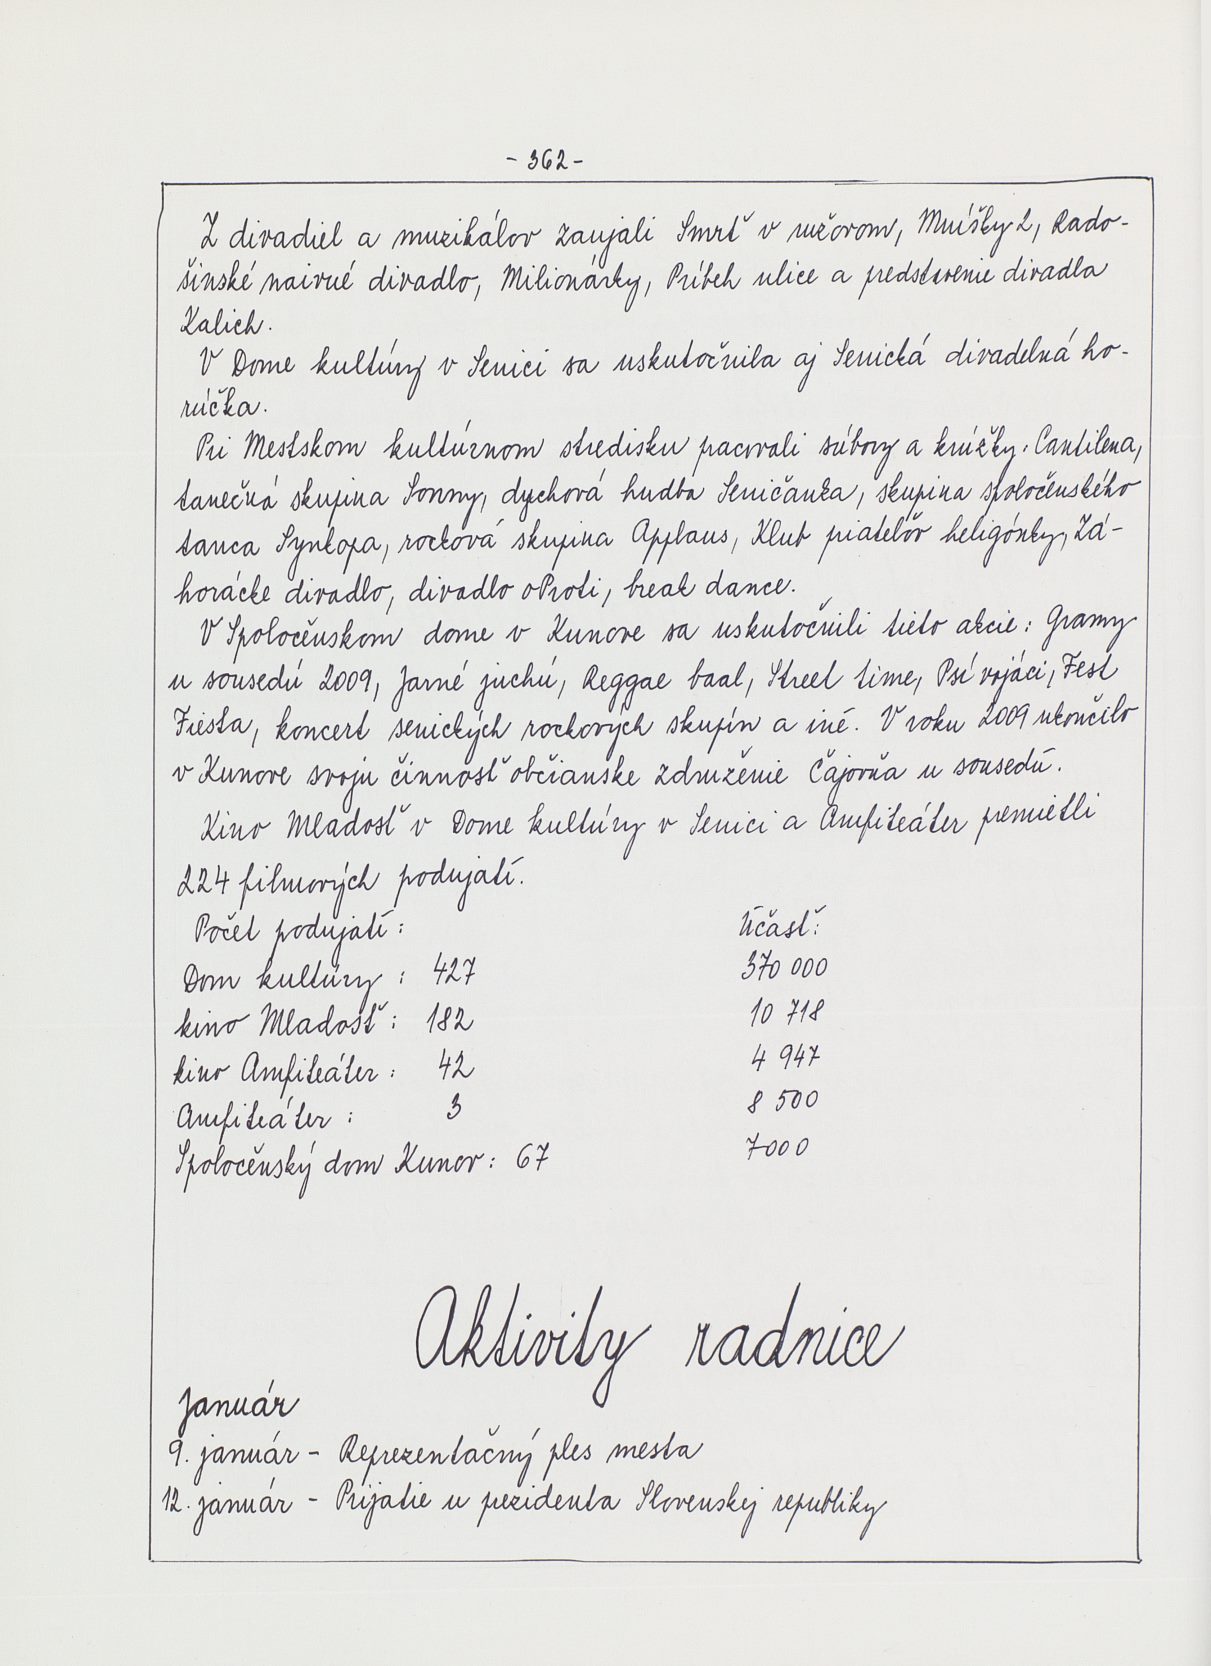 - 362 -
Z divadiel a muzikálov zaujali Smrť v ružovom, Mníšky 2, Rado-
šinské naivné divadlo, Milionárky, Príbeh ulice a predstavenie divadla
Kalich.
V Dome kultúry v Senici sa uskutočnila aj Senická divadelná ho-
rúčka.
Pri Mestskom kultúrnom stredisku pracovali súbory a krúžky: Cantilena,
tanečná skupina Sonny, dychová hudba Seničanka, skupina spoločenského
tanca Synkopa, rocková skupina Applaus, Klub priateľov heligónky, Zá-
horácke divadlo, divadlo oProti, break dance.
V Spoločenskom dome v Kunove sa uskutočnili tieto akcie: Gramy
u sousedú 2009, Jarné juchú, Reggae baal, Street time, Psí vojáci, Fest
Fiesta, koncert senických rockových skupín a iné. V roku 2009 ukončilo
v Kunove svoju činnosť občianske združenie Čajovňa u sousedú.
Kino Mladosť v Dome kultúry v Senici a Amfiteáter premietli
224 filmových podujatí.
Počet podujatí: Účasť:
Dom kultúry: 427 370 000
kino Mladosť: 182 10 718
kino Amfiteáter: 42 4 947
Amfiteáter: 3 8 500
Spoločenský dom Kunov: 67 7000
Aktivity radnice
Január
9. január - Reprezentačný ples mesta
12. január - Prijatie u prezidenta Slovenskej republiky